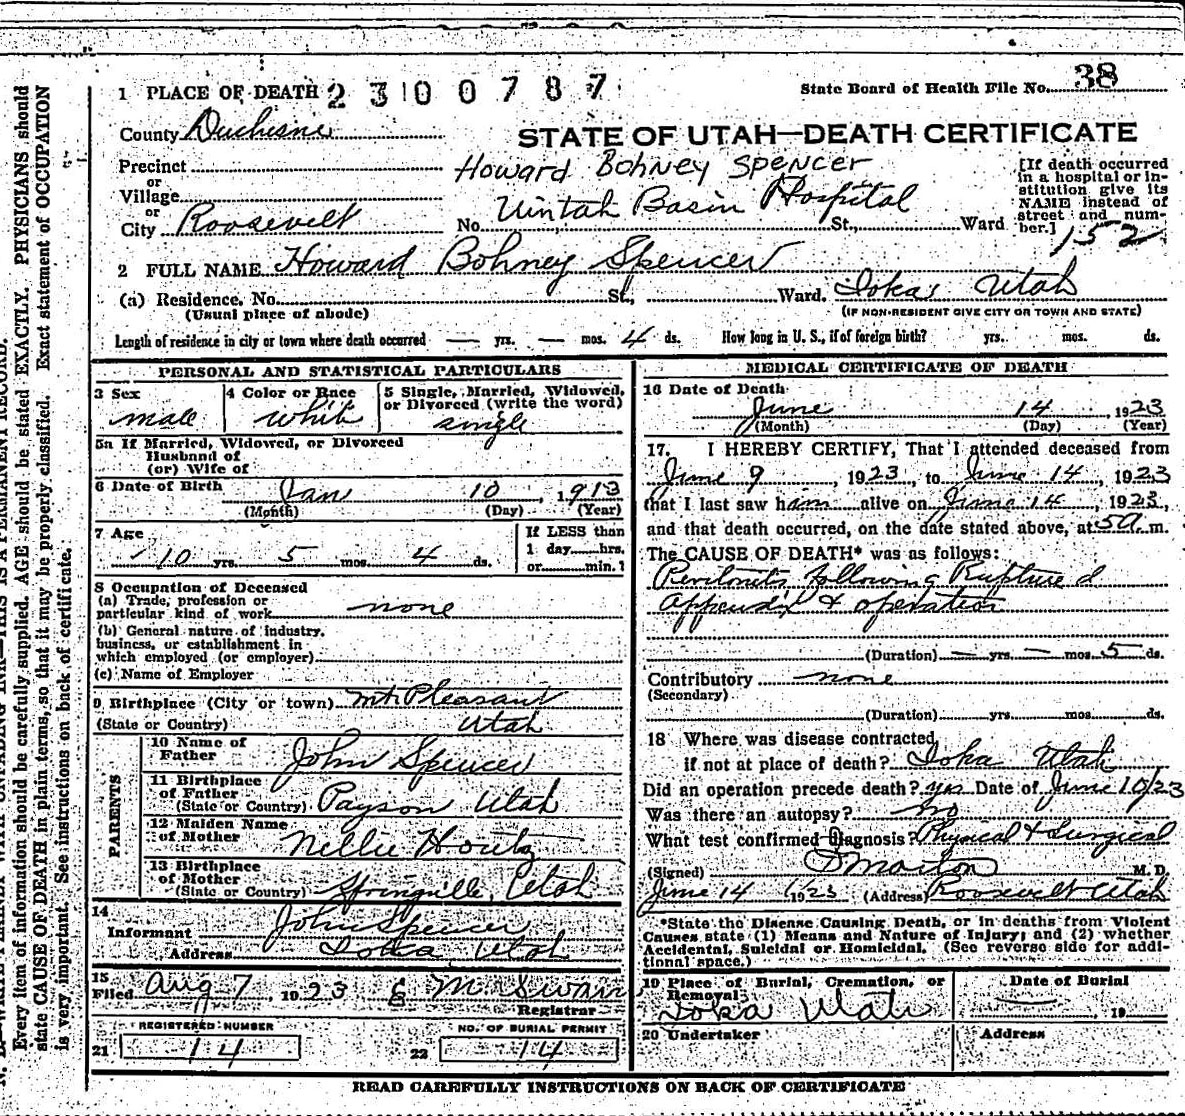 State Board of Health File No. 38
1 PLACE OF DEATH 2300787
County Duchesne
STATE OF UTAH—DEATH CERTIFICATE
Precinct
or
Village
or
City Roosevelt
Howard Bohney Spencer
No. Uintah Basin Hospital St., Ward
[If death occurred
in a hospital or in-
stitution give its
NAME instead of
street and num-
ber.] 152
2 FULL NAME Howard Bohney Spencer
(a) Residence. No. St., Ward. Ioka Utah
(Usual place of abode) (IF NON-RESIDENT GIVE CITY OR TOWN AND STATE)
Length of residence in city or town where death occurred — yrs. — mos. 4 ds. How long in U. S., if of foreign birth? yrs. mos. ds.
PERSONAL AND STATISTICAL PARTICULARS
3 Sex
male
4 Color or Race
white
5 Single, Married, Widowed,
or Divorced (write the word)
single
5a If Married, Widowed, or Divorced
Husband of
(or) Wife of
6 Date of Birth Jan 10 1913
(Month) (Day) (Year)
7 Age
10 yrs. 5 mos. 4 ds.
If LESS than
1 day hrs.
or min.?
8 Occupation of Deceased
(a) Trade, profession or
particular kind of work none
(b) General nature of industry,
business, or establishment in
which employed (or employer)
(c) Name of Employer
9 Birthplace (City or town) Mt. Pleasant
(State or Country) Utah
PARENTS
10 Name of
Father John Spencer
11 Birthplace
of Father
(State or Country) Payson Utah
12 Maiden Name
of Mother Nellie Houtz
13 Birthplace
of Mother
(State or Country) Springville, Utah
14
Informant John Spencer
Address Ioka, Utah
15
Filed Aug 7, 1923 M. Swain
Registrar
REGISTERED NUMBER
21 14
NO. OF BURIAL PERMIT
22 14
MEDICAL CERTIFICATE OF DEATH
16 Date of Death
June 14, 1923
(Month) (Day) (Year)
17. I HEREBY CERTIFY, That I attended deceased from
June 9, 1923, to June 14, 1923
that I last saw him alive on June 14, 1923,
and that death occurred, on the date stated above, at 5 a. m.
The CAUSE OF DEATH* was as follows:
Peritonitis following Ruptured
appendix & operation
(Duration) — yrs. — mos. 5 ds.
Contributory none
(Secondary)
(Duration) yrs. mos. ds.
18 Where was disease contracted
if not at place of death? Ioka Utah
Did an operation precede death? yes Date of June 10/23
Was there an autopsy? no
What test confirmed Diagnosis? Physical & Surgical
(Signed) M. D.
June 14 1923 (Address) Roosevelt Utah
*State the Disease Causing Death, or in deaths from Violent
Causes state (1) Means and Nature of Injury; and (2) whether
Accidental, Suicidal or Homicidal. (See reverse side for addi-
tional space.)
19 Place of Burial, Cremation, or
Removal
Ioka Utah
Date of Burial
19
20 Undertaker Address
READ CAREFULLY INSTRUCTIONS ON BACK OF CERTIFICATE
Every item of information should be carefully supplied. AGE should be stated EXACTLY. PHYSICIANS should
state CAUSE OF DEATH in plain terms, so that it may be properly classified. Exact statement of OCCUPATION
is very important. See instructions on back of certificate.